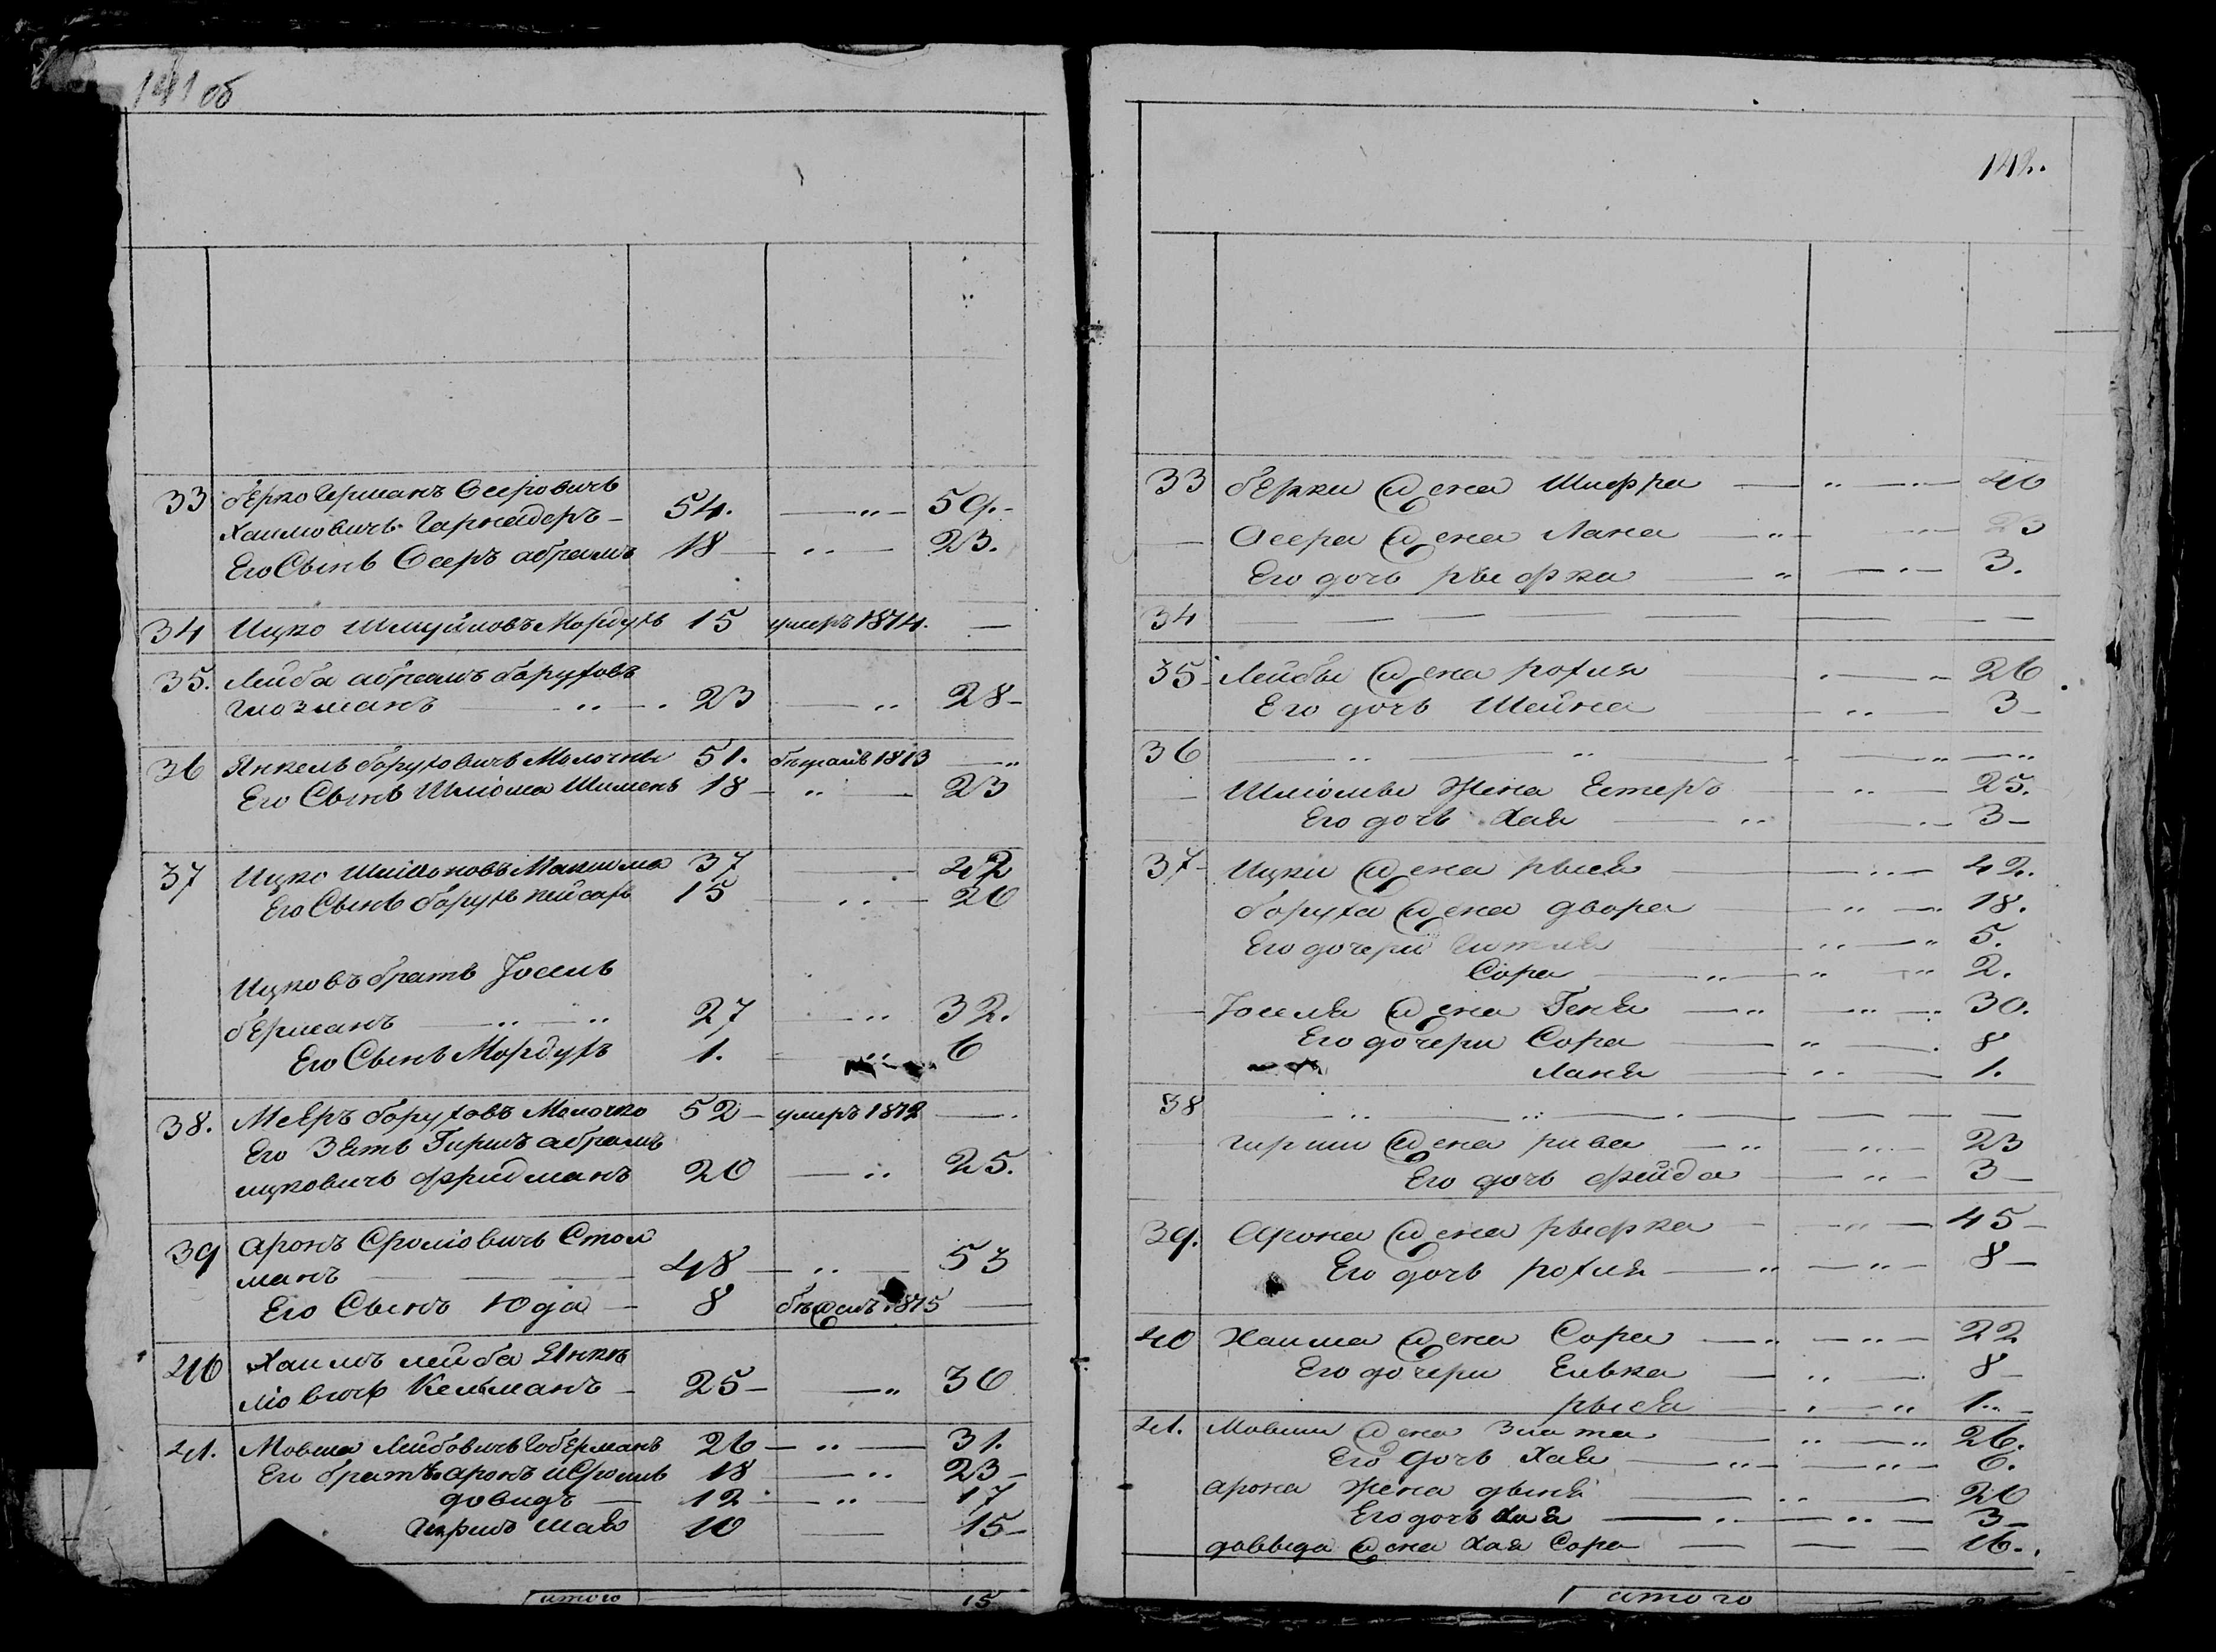 141 об
33 Берко Германъ Осеровичъ
Хаимовичъ Гарнадеръ — 54. — " — 59.-
Его Сынъ Осеръ абрамъ 18 — " — 23.
34 Ицко Шмуйловъ Мордухъ 15 умеръ 1814. —
35. Лейба абрамъ боруховъ
Глозманъ — " — . 23 — " 28-
36 Янкель боруховичъ Молочны 51. бъжалъ 1813 — "
Его Сынъ Шліома Шименъ 18 — " — 23
37 Ицко 37 — . 42
Его Сынъ борухъ кейсаръ 15 — " — 20
Ицковъ братъ Іосель
берманъ — " — " 27 — " 32.
Его Сынъ Мордухъ 1. — " 6
38. Мееръ боруховъ Молочко 52 — умеръ 1812 — .
Его Зять Гиршъ абрамъ
ицковичъ фридманъ 20 — " 25.
39 аронъ Сроліовичъ Стол
манъ — — — 48 — " — 53
Его Сынъ Юда — 8 бъжалъ 1815 —
40 Хаимъ лейба Янке
ліовичъ Кельманъ — 25 — — " 30
41. Мовша Лейбовичъ Гоберманъ 26 — " — 31.
Его братъя аронъ иСроль 18 — " 23 —
довидъ — 12 — " — 17
Гиршъ шая 10 — 15 —
итого — — 15
142.
33 берки жена Шифра — " — " — 40
— Осера жена Лана — " — " — 23
Его дочь рыфка — " — " — 3.
34 — — — — — — —
35 Лейбы жена рохля . — " 26
Его дочь Шейна — " — 3 —
36 — " — " — " — " — "
— Шліомы жена Естеръ — " — 25.
Его дочь Хая — " — " — 3 —
37 - Ицки жена рыся — " — 42.
боруха жена двора — " — " 18.
Его дочери — " — " 5.
Сора — " — " — " 2.
— Іоселя жена Геня — " — " — " 30.
Его дочери Сора — " — . 8
Ланя — " — 1.
38 — " — " — . — — — —
— гирши жена рива — " — " — 23
Его дочь фейда — " — 3 —
39. Арона жена рыфка — " — 45 —
Его дочь рохля — " — " — 8 —
40 Хаима жена Сора — " — " — 22
Его дочери Еивка — " — . 8 —
рыся — . — " 1. —
41. Мовши жена Злата — " — " 26.
Его дочь Хая — " — " — 6.
арона жена двиня — " — 20
Его дочь — . — " — 3 —
доввида жена Хая Сора — — — 16.
итого — —